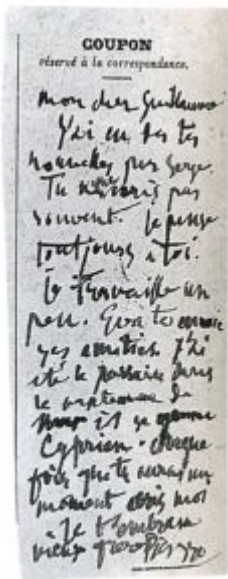 COUPON
réservé à la correspondance.
Mon cher Guillaume
J'ai eu de tes
nouvelles par Serge.
Tu n'écris pas
souvent. Je pense
toujours à toi.
Je travaille un
peu. Eva te envoie
ses amitiés J'ai
été le
le
il se
Cyprien. chaque
fois que tu auras un
moment écris moi
Je t'embrasse
vieux